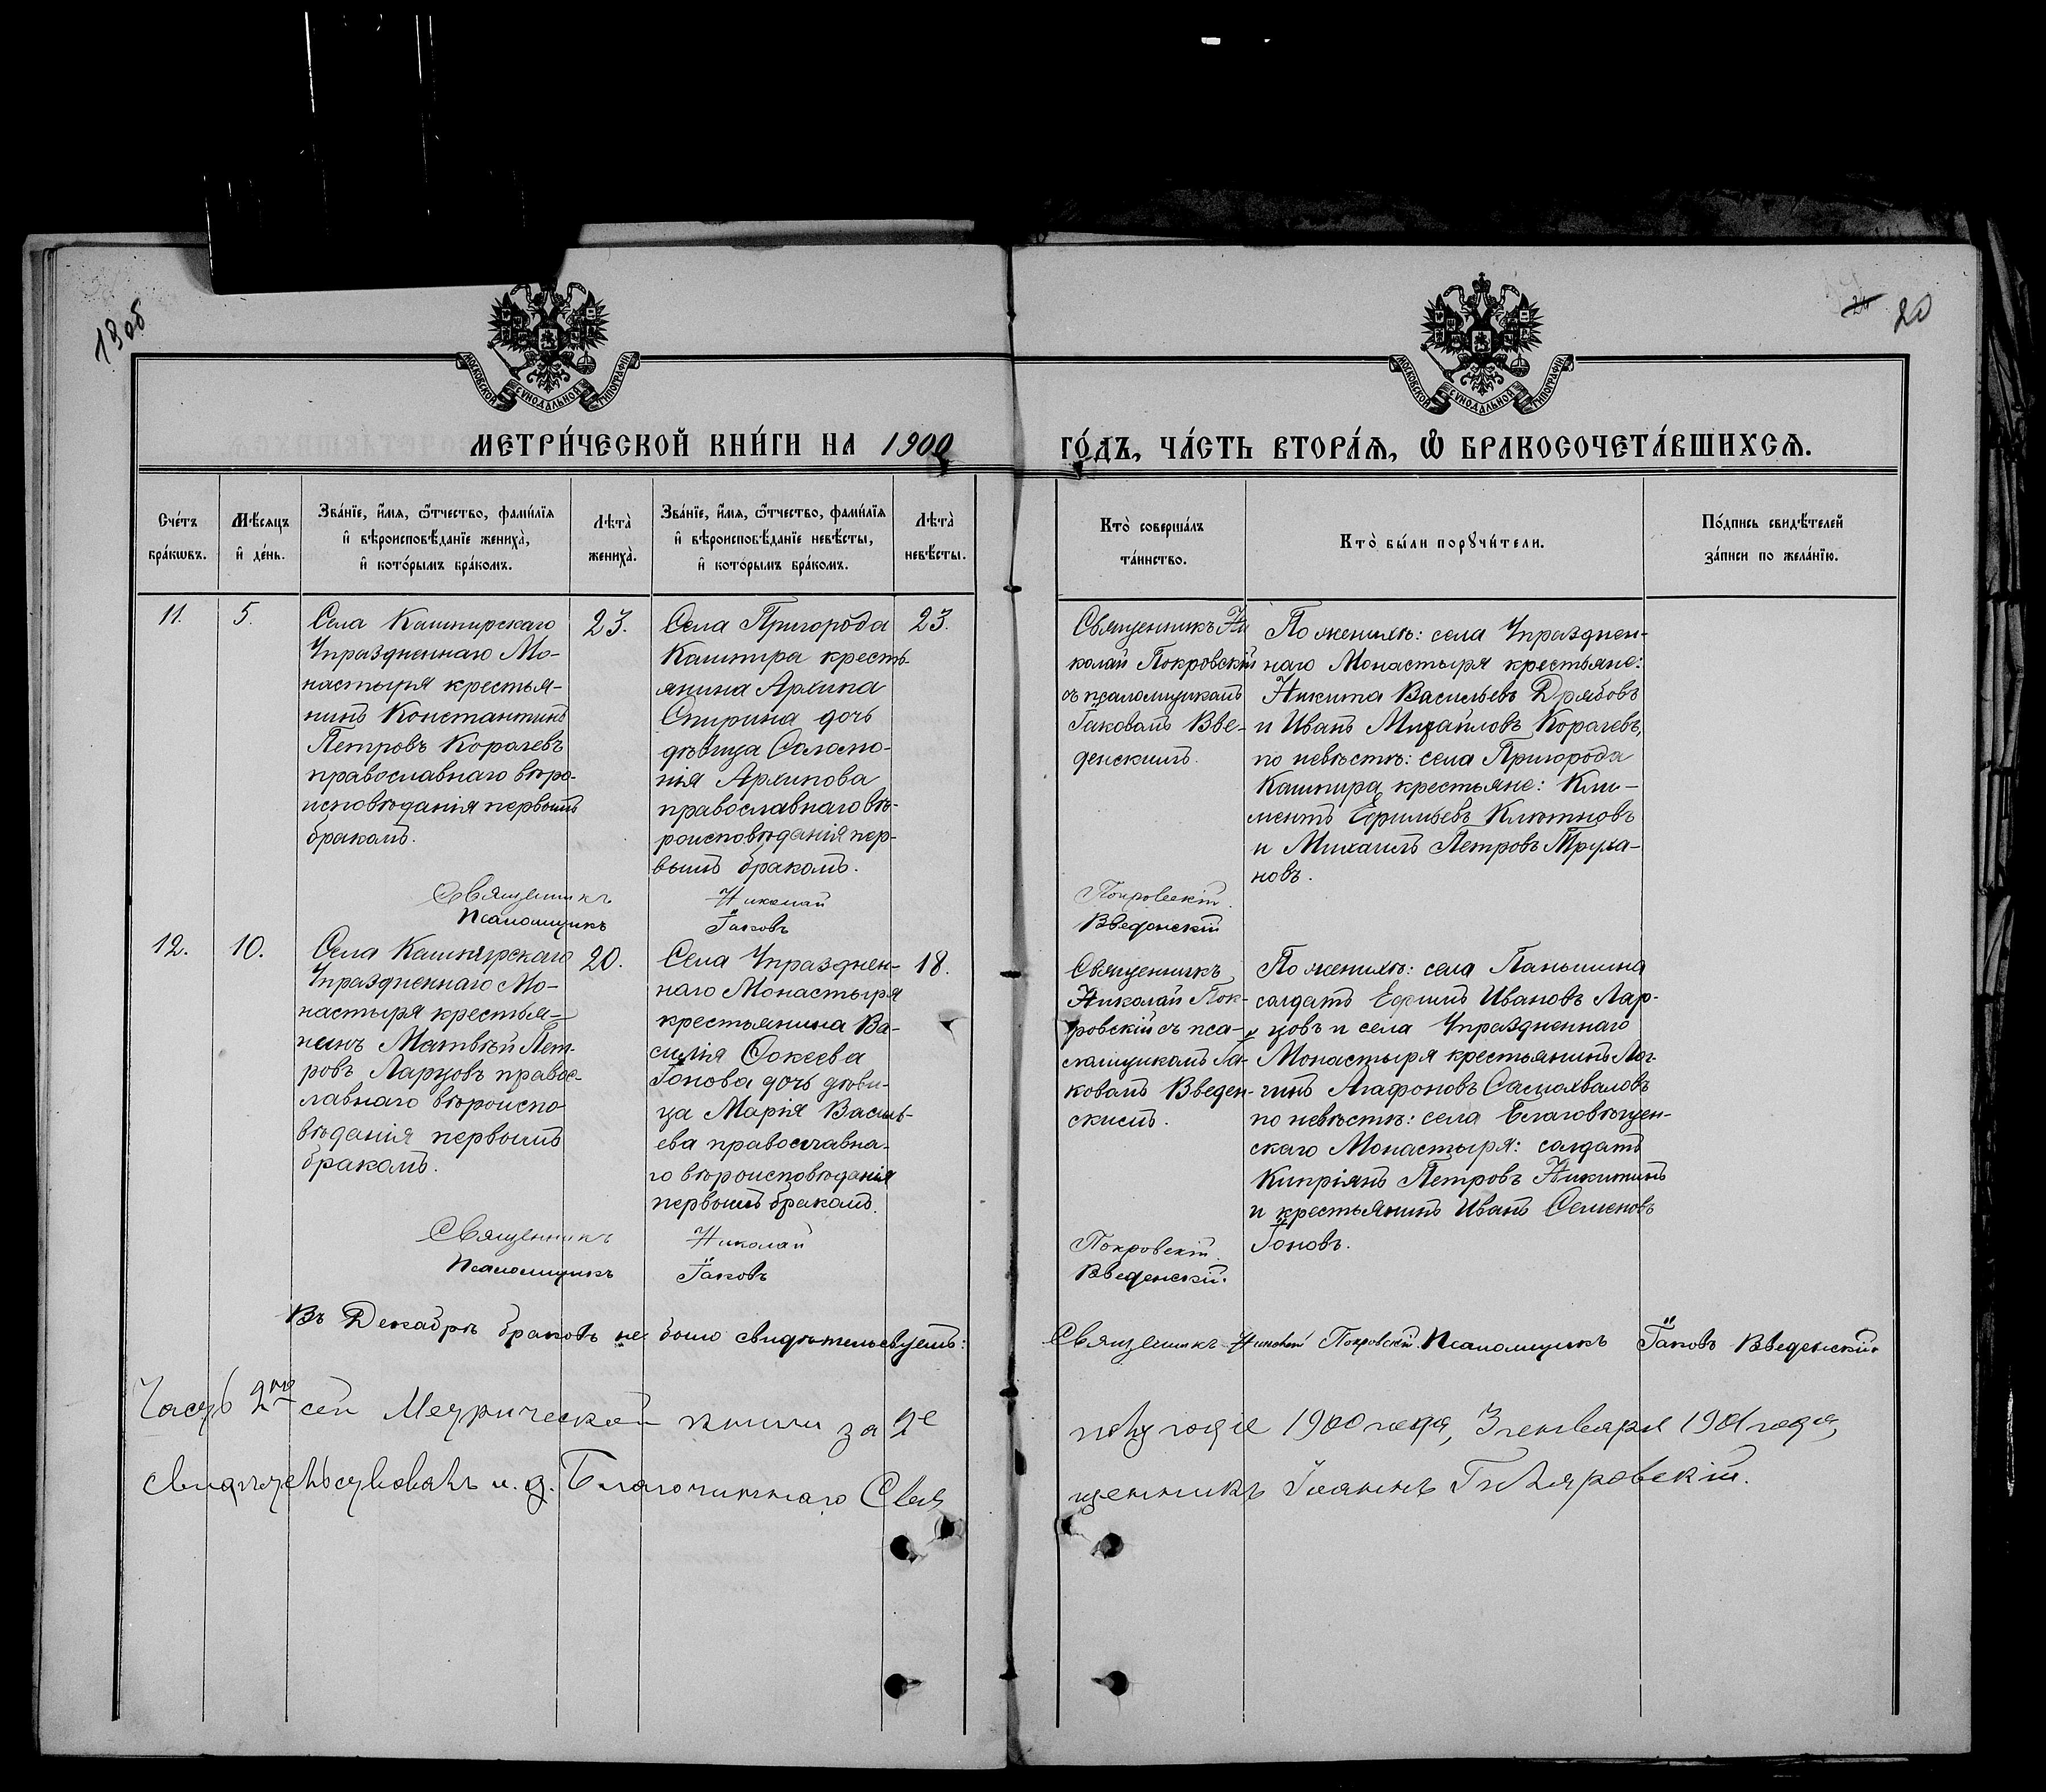 19об
20
МОСКОВСКОЙ СѴНОДАЛЬНОЙ ТИПОГРАФІИ
МОСКОВСКОЙ СѴНОДАЛЬНОЙ ТИПОГРАФІИ
МЕТРИ́ЧЕСКОЙ КНИ́ГИ НА 1900
ГО́ДЪ, ЧА́СТЬ ВТОРА́Я, Ѽ БРАКОСОЧЕТА́ВШИХСЯ.
Сче́тъ
бра́кѡвъ.
Мѣ́сяцъ
и҆ де́нь.
Зва́нїе, и҆́мя, ѻ҆́тчество, фами́лїя
и҆ вѣроисповѣ́данїе жениха̀,
и҆ кото́рымъ бра́комъ.
Лѣта̀
жениха̀.
Зва́нїе, и҆́мя, ѻ҆́тчество, фами́лїя
и҆ вѣроисповѣ́данїе невѣ́сты,
и҆ кото́рымъ бра́комъ.
Лѣта̀
невѣ́сты.
Кто̀ соверша́лъ
та́инство.
Кто̀ бы́ли порꙋчи́тели.
По́дпись свидѣ́телей
за́писи по жела́нїю.
11.
5.
Села Кашпирскаго
Упраздненнаго Мо-
настыря крестья-
нинъ Константинъ
Петровъ Корачевъ
православнаго вѣро-
исповѣданія первымъ
бракомъ.
23.
Села Пригорода
Кашпира кресть-
янина Архипа
Спирина дочь
дѣвица Соломо-
нія Архипова
православнаго вѣ-
роисповѣданія пер-
вымъ бракомъ.
23.
Священникъ Ни
колай Покровскій
съ псаломщикомъ
Іаковомъ Вве-
денскимъ.
По женихѣ: села Упразднен-
наго Монастыря крестьяне:
Никита Васильевъ Дрябовъ
и Иванъ Михайловъ Корачевъ,
по невѣстѣ: села Пригорода
Кашпира крестьяне: Кли-
ментъ Ефимьевъ Клютновъ
и Михаилъ Петровъ Труха-
новъ.
Священникъ Николай Покровскій.
Псаломщикъ Іаковъ Введенскій
12.
10.
Села Кашпирскаго
Упраздненнаго Мо-
настыря крестья-
нинъ Матвѣй Пет-
ровъ Ларцовъ правос-
лавнаго вѣроиспо-
вѣданія первымъ
бракомъ.
20.
Села Упразднен-
наго Монастыря
крестьянина Ва-
силія Фокеева
Іонова дочь дѣви-
ца Марія Василь-
ева православна-
го вѣроисповѣданія
первымъ бракомъ.
18.
Священникъ
Николай Пок-
ровскій съ пса-
ломщикомъ Іа-
ковомъ Введен-
скимъ.
По женихѣ: села Паньшина
солдатъ Ефимъ Ивановъ Лар-
цовъ и села Упраздненнаго
Монастыря крестьянинъ Лог-
гинъ Агафоновъ Самохваловъ
по невѣстѣ: села Благовѣщен-
скаго Монастыря: солдатъ
Кипріянъ Петровъ Никитинъ
и крестьянинъ Иванъ Семеновъ
Іоновъ.
Священникъ Николай Покровскій.
Псаломщикъ Іаковъ Введенскій.
Въ Декабрѣ браковъ не было свидѣтельсвуетъ: Священникъ Николай Покровскій. Псаломщикъ Іаковъ Введенскій.
Часть 2ую сей Метрической книги за 2е полугодіе 1900 года, 3 января 1901 года,
свидѣтельствовалъ и. д. Благочиннаго Свя щенникъ Іоаннъ Гиляровскій.